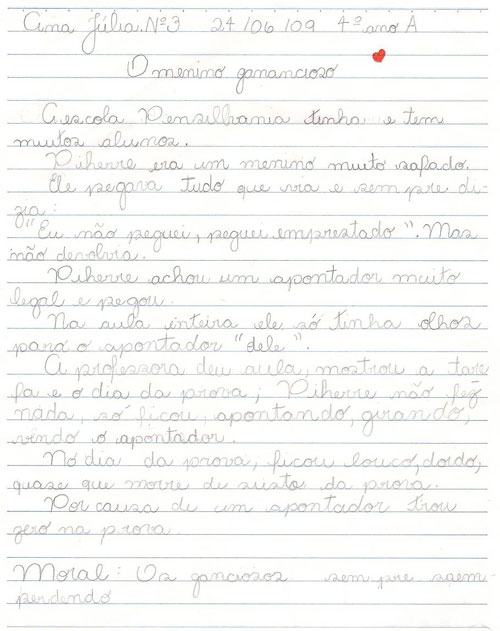 Ana Júlia. Nº 3 24/06/09 4º ano A
O menino ganancioso
A escola Pensilvania tinha e tem
muitos alunos.
Piherre era um menino muito safado.
Ele pegava tudo que via e sem pre di-
zia:
"Eu não peguei, peguei emprestado". Mas
não devolvia.
Piherre achou um apontador muito
legal e pegou.
Na aula inteira ele só tinha olhos
para o apontador "dele".
A professora deu aula, mostrou a tare
fa e o dia da prova; Piherre não fez
nada, só ficou, apontando, girando,
vendo o apontador.
No dia da prova, ficou louco, doido,
quase que morre de susto da prova.
Por causa de um apontador tirou
zero na prova.
Moral: Os ganciosos sem pre saem
perdendo